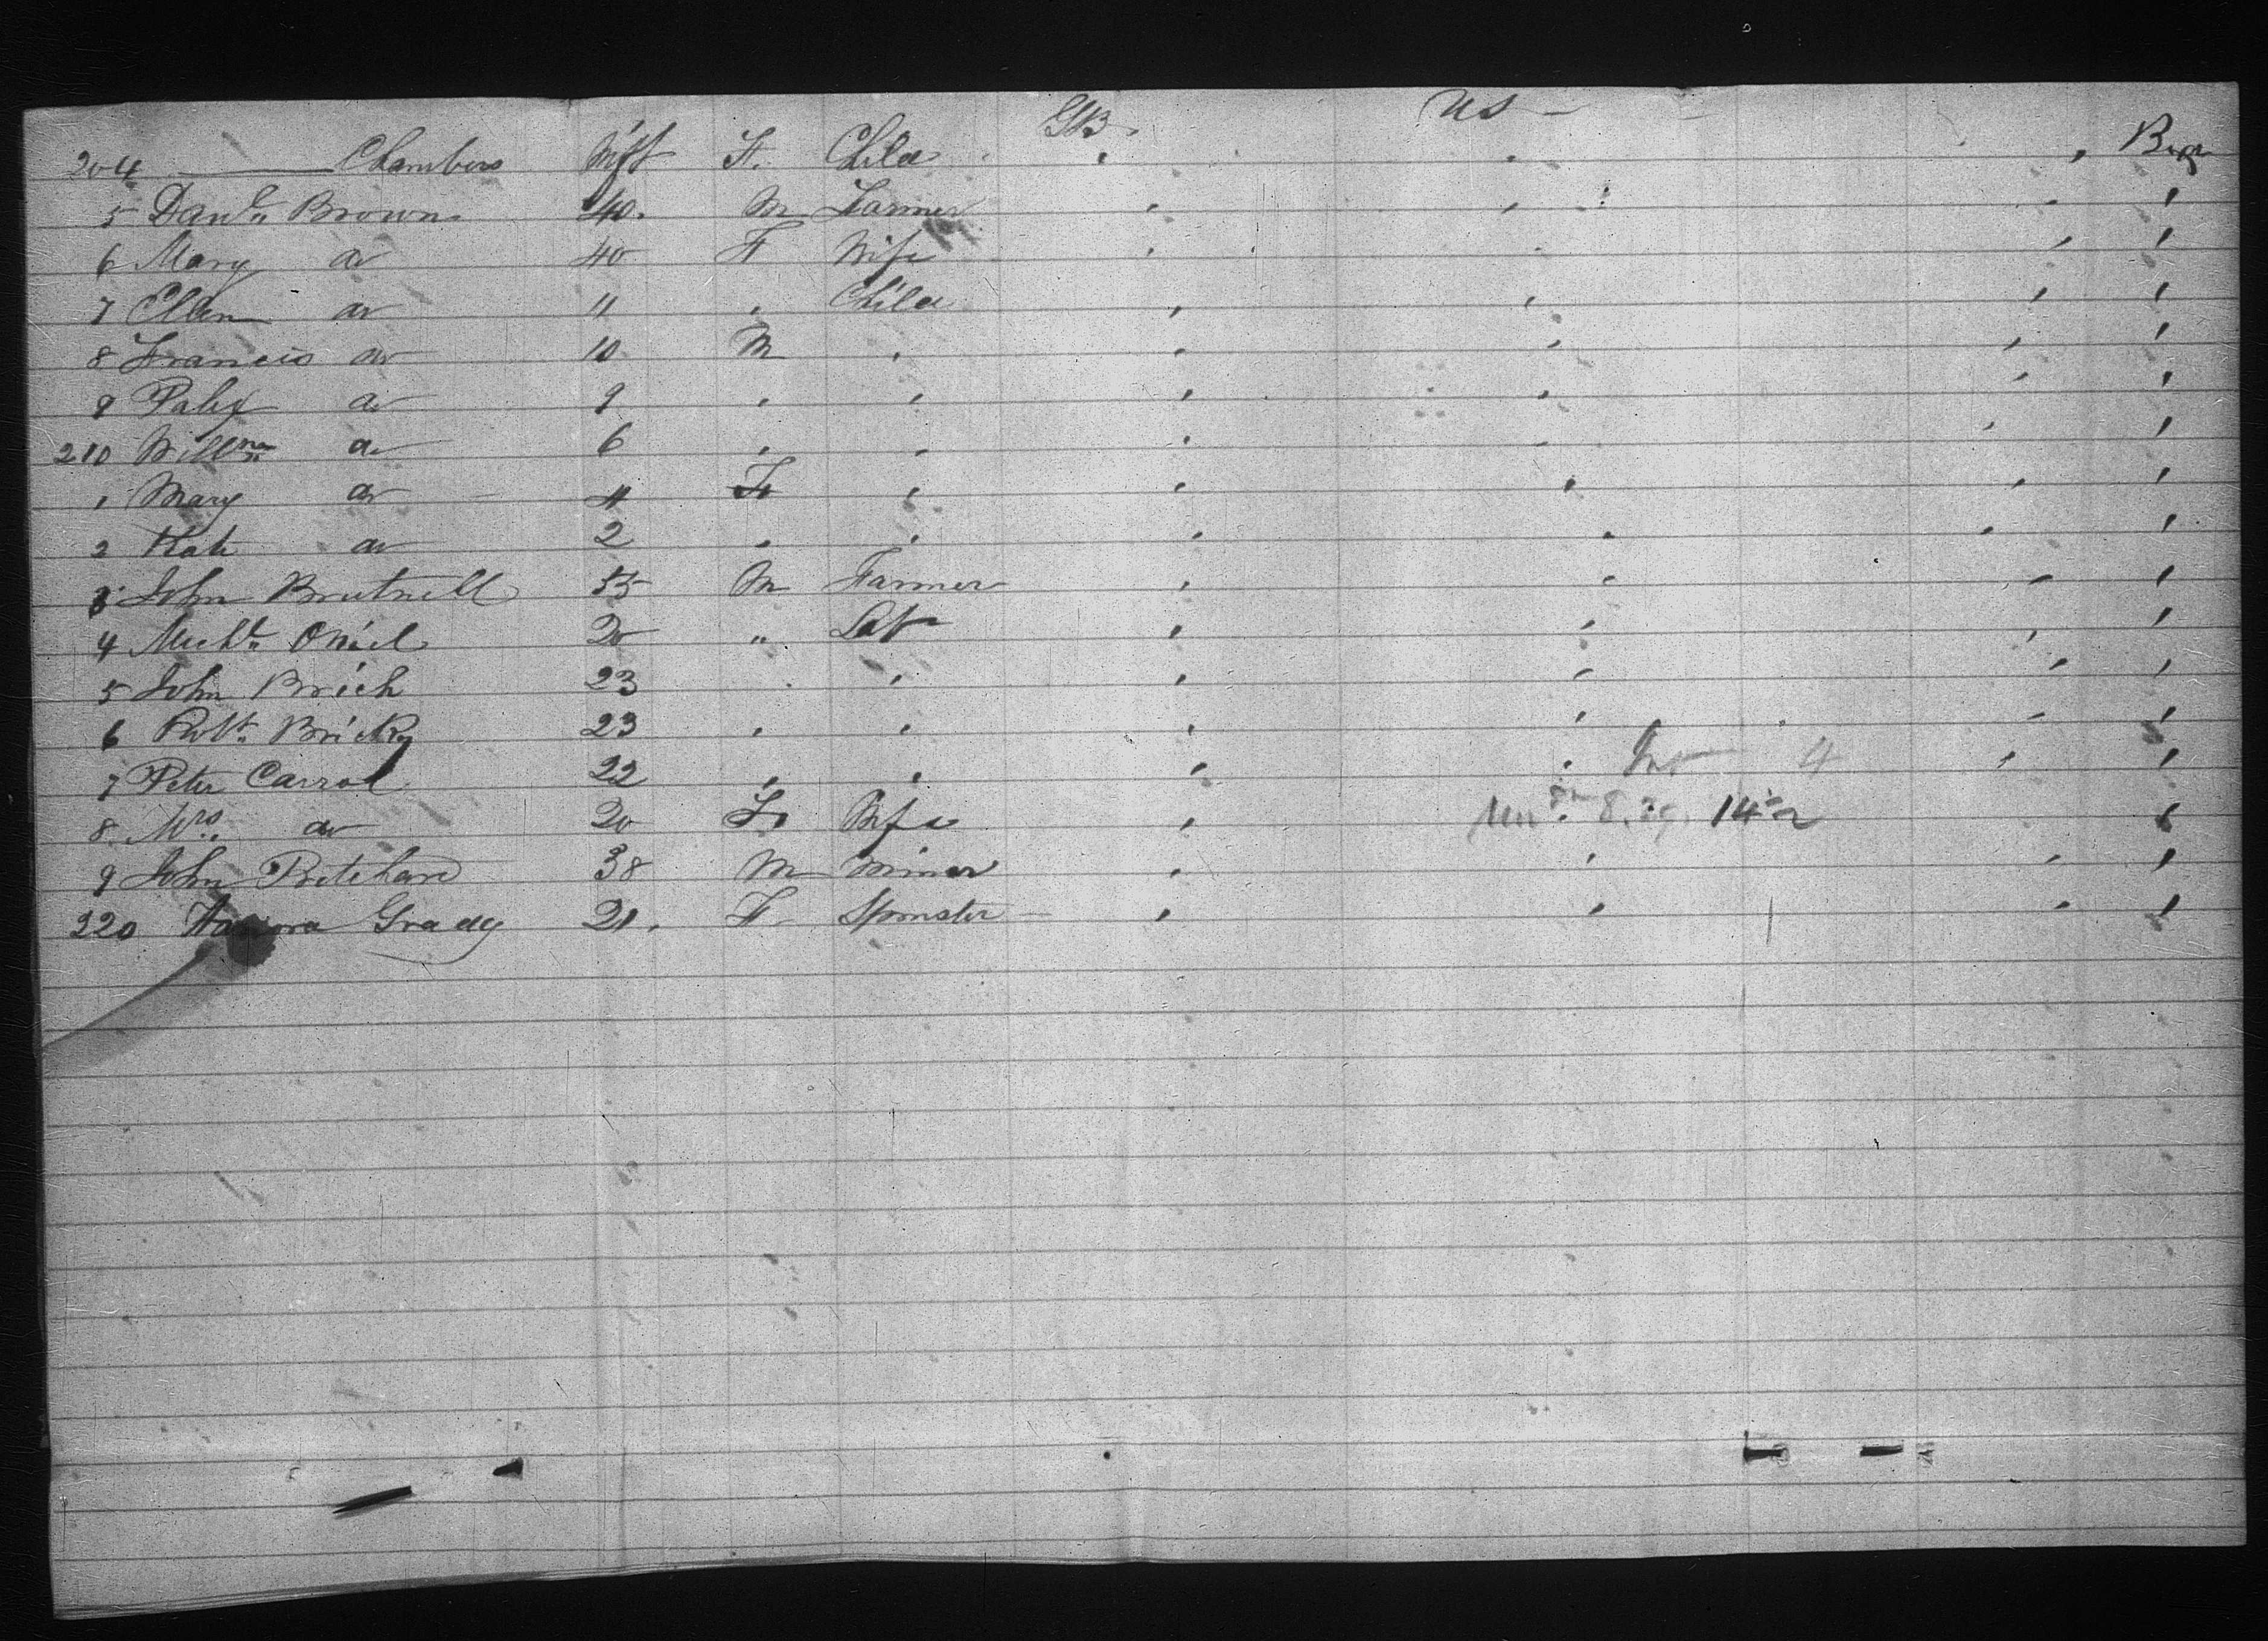 GB. US
204 —— Chambers Inft F. Child , , , Bags
5 Danl. Brown 40. M Farmer , , , ,
6 Mary do 40 F Wife , , ,
7 Ellen do 11 , Child , , , ,
8 Francis do 10 M , , , , ,
9 do 9 , , , , , ,
210 Willm do 6 , , , , , ,
1 Mary do 4 F , , , , ,
2 Kate do 2 , , , , , ,
3 John Brutnell 55 M Farmer , , , ,
4 Michl. ONiel 20 " Lab , , , ,
5 John Brich 23 , , , , , ,
6 Robt. Bricky 23 , , , , , ,
7 Peter Carrol 22 , , , , 4 , ,
8 Mrs. do 20 F Wife , 14 ,
9 John Pritchard 38 M Miner , , , ,
220 Hanora Grady 21. F Spinster , , , ,